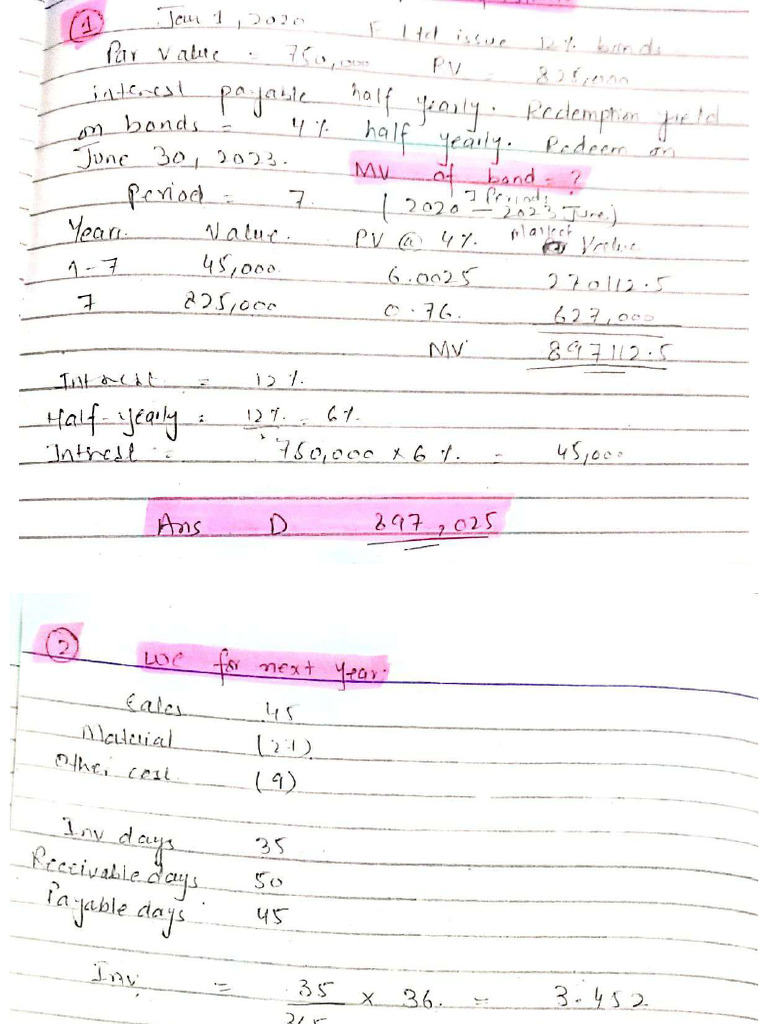 ① Jan 1, 2020 F Ltd issue 12% bonds
Par Value : 750,000 PV 825,000
interest payable half yearly. Redemption yield
on bonds = 4% half yearly. Redeem on
June 30, 2023.
MV of bond = ?
Period = 7 (2020 - 2023, June) 7 Periods
Years Value PV @ 4% Market Value
1-7 45,000 6.0025 270112.5
7 825,000 0.76 627,000
MV 897112.5
Interest = 12%
Half-yearly = 12% = 6%
2
Intrest = 750,000 x 6% = 45,000
Ans D 897,025
② WC for next year
Sales 45
Material (27)
Other cost (9)
Inv days 35
Receivable days 50
Payable days 45
Inv = 35 x 36 = 3.452
365